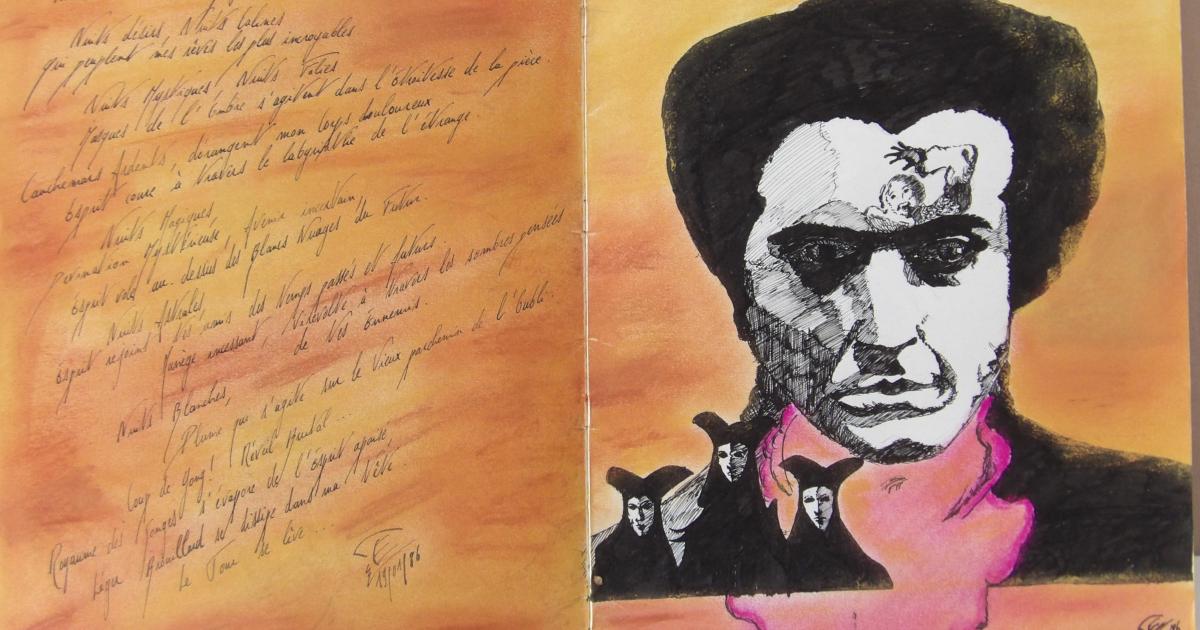 Nuits désirs, Nuits Calines
qui peuplent mes rêves les plus incroyables
Nuits Mystiques, Nuits Folies
Masques de l'Ombre s'agitent dans l'étroitesse de la pièce.
Cauchemars Ardents, dérangent mon Corps douloureux
Esprit court à travers le labyrinthe de l'étrange.
Nuits Magiques
Divination Mystérieuse, Avenir incertain
Esprit vole au-dessus des Blancs Nuages du Futur.
Nuits Astrales,
Esprit rejoins des Temps passés et futurs.
Manège incessant, Virevolte à travers les sombres pensées
de Vos Ennemis.
Nuits Blanches,
Plume qui s'agite sur le Vieux parchemin de l'Oubli.
Coup de Gong! Réveil Brutal...
Royaume des Songes s'évapore de l'Esprit apaisé,
Léger Brouillard se dissipe dans ma Tête.
Le Jour se lève...
19/01/86
86